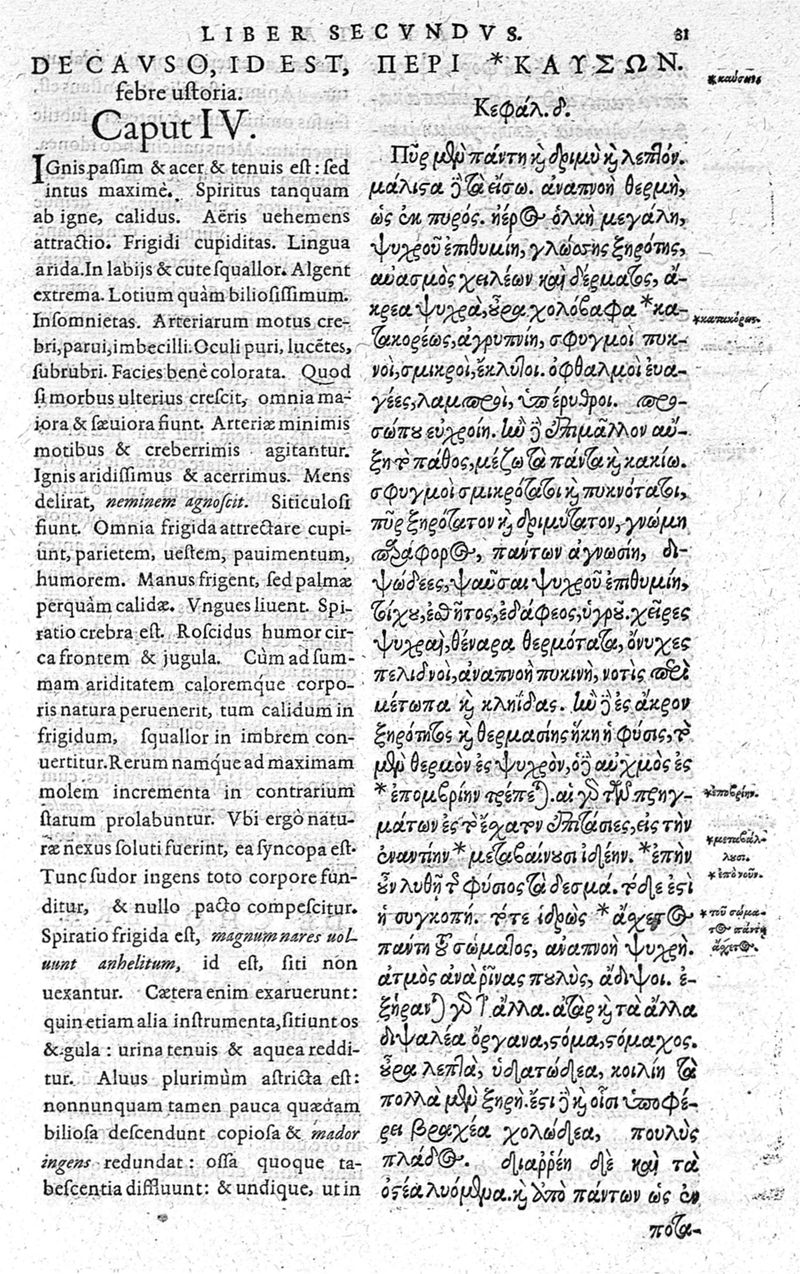 LIBER SECVNDVS. 81
DE CAVSO, ID EST,
febre uſtoria.
Caput IV.
IGnis paſſim & acer & tenuis eſt: ſed
intus maximè. Spiritus tanquam
ab igne, calidus. Aëris uehemens
attractio. Frigidi cupiditas. Lingua
arida. In labijs & cute ſquallor. Algent
extrema. Lotium quàm bilioſiſſimum.
Inſomnietas. Arteriarum motus cre-
bri, parui, imbecilli. Oculi puri, lucẽtes,
ſubrubri. Facies benè colorata. Quod
ſi morbus ulterius creſcit, omnia ma-
iora & ſæuiora fiunt. Arteriæ minimis
motibus & creberrimis agitantur.
Ignis aridiſſimus & acerrimus. Mens
delirat, neminem agnoſcit. Siticuloſi
fiunt. Omnia frigida attrectare cupi-
unt, parietem, ueſtem, pauimentum,
humorem. Manus frigent, ſed palmæ
perquàm calidæ. Vngues liuent. Spi-
ratio crebra eſt. Roſcidus humor cir-
ca frontem & iugula. Cùm ad ſum-
mam ariditatem caloremq́ue corpo-
ris natura peruenerit, tum calidum in
frigidum, ſquallor in imbrem con-
uertitur. Rerum namque ad maximam
molem incrementa in contrarium
ſtatum prolabuntur. Vbi ergò natu-
ræ nexus ſoluti fuerint, ea ſyncopa eſt.
Tunc ſudor ingens toto corpore fun-
ditur, & nullo pacto compeſcitur.
Spiratio frigida eſt, magnum nares uol-
uunt anhelitum, id eſt, ſiti non
uexantur. Cætera enim exaruerunt:
quin etiam alia inſtrumenta, ſitiunt os
& gula: urina tenuis & aquea reddi-
tur. Aluus plurimùm aſtricta eſt:
nonnunquam tamen pauca quædam
bilioſa deſcendunt copioſa & mador
ingens redundat: oſſa quoque ta-
beſcentia diffluunt: & undique, ut in
ΠΕΡΙ *ΚΑΥΣΩΝ.
Κεφάλ. δ.
Πῦρ μὲν πάντη καὶ δριμὺ καὶ λεπτόν.
μάλιστα δὲ τὰ εἴσω. ἀναπνοὴ θερμὴ,
ὡς ἐκ πυρός. ἠέρος ὁλκὴ μεγάλη,
ψυχροῦ ἐπιθυμίη, γλώσσης ξηρότης,
αὐασμὸς χειλέων καὶ δέρματος, ἄ-
κρεα ψυχρὰ, οὖρα χολόβαφα *κα-
τακορέως, ἀγρυπνίη, σφυγμοὶ πυκ-
νοὶ, σμικροὶ, ἔκλυτοι. ὀφθαλμοὶ εὐα-
γέες, λαμπροὶ, ὑπέρυθροι. προ-
σώπου εὐχροίη. ἢν δὲ ἐπιμᾶλλον αὔ-
ξῃ τὸ πάθος, μέζω τὰ πάντα καὶ κακίω.
σφυγμοὶ σμικρότατοι καὶ πυκνότατοι,
πῦρ ξηρότατον καὶ δριμύτατον, γνώμη
παράφορος, πάντων ἀγνωσίη, δι-
ψώδεες, ψαῦσαι ψυχροῦ ἐπιθυμίη,
τοίχου, ἐσθῆτος, ἐδάφεος, ὑγροῦ. χεῖρες
ψυχραὶ, θέναρα θερμότατα, ὄνυχες
πελιδνοὶ, ἀναπνοὴ πυκινὴ, νοτὶς περὶ
μέτωπα καὶ κληῖδας. ἢν δὲ ἐς ἄκρον
ξηρότητος καὶ θερμασίης ἥκῃ ἡ φύσις, τὸ
μὲν θερμὸν ἐς ψυχρὸν, ὁ δὲ αὐχμὸς ἐς
*ἐπομβρίην τρέπεται. αἱ γὰρ τῶν πρηγ-
μάτων ἐς τὸ ἔσχατον ἐπιτάσιες, εἰς τὴν
ἐναντίην *μεταβαίνουσι ἰδέην. *ἐπὴν
οὖν λυθῇ τῆς φύσιος τὰ δεσμά. τόδε ἐστὶ
ἡ συγκοπή. τότε ἱδρὼς *ἄσχετος
πάντη τοῦ σώματος, ἀναπνοὴ ψυχρή.
ἀτμὸς ἀνὰ ῥῖνας πουλὺς, ἄδιψοι. ἐ-
ξήρανται γὰρ τἆλλα. ἀτὰρ καὶ τὰ ἄλλα
διψαλέα ὄργανα, στόμα, στόμαχος.
οὖρα λεπτὰ, ὑδατώδεα, κοιλίη τὰ
πολλὰ μὲν ξηρή. ἔστι δὲ καὶ οἷσι ὑποφέ-
ρει βραχέα χολώδεα, πουλὺς
πλάδος. διαρρέη δὲ καὶ τὰ
ὀστέα λυόμενα. καὶ ἀπὸ πάντων ὡς ἐν
ποτα-
*καύσου
*κατακόρως.
*ἐποβρίην.
*μεταβάλ-
λουσι.
*ἐπὸν οὖν.
*τοῦ σώμα-
τος πάντη
ἄσχετος.